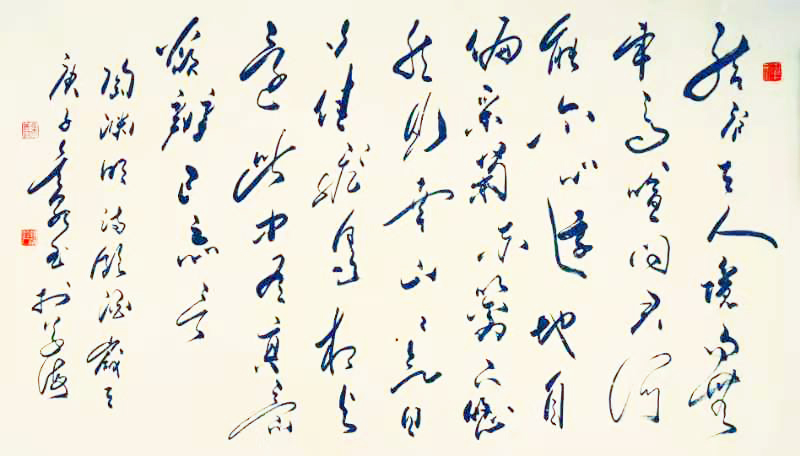 結廬在人境而無
車馬喧問君何
能尔心遠地自
偏采菊東籬下悠
然見南山山氣日
夕佳飛鳥相與
還此中有真意
欲辨已忘言
陶淵明詩飲酒歲之
庚子書於海